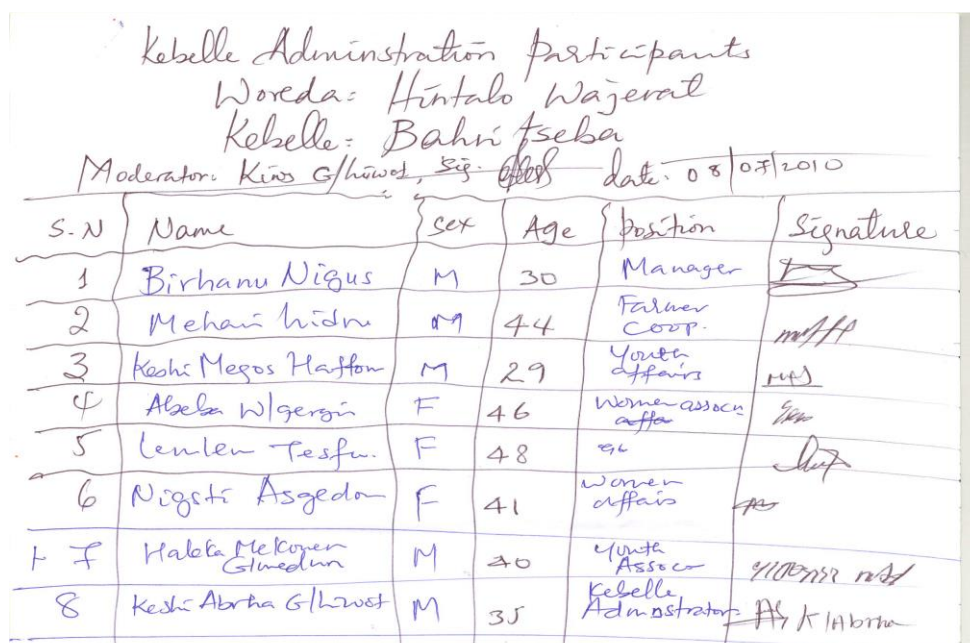 Kebelle Adminstration Participants
Woreda: Hintalo Wajerat
Kebelle: Bahri tseba
Moderator: Kiros G/hiwot, Sig. date: 08/07/2010
S.N Name Sex Age position Signature
1 Birhanu Nigus M 30 Manager
2 Mehari hidru M 44 Farmer Coop.
3 Keshi Megos Haftom M 29 Youth affairs
4 Abeba W/gergis F 46 Women assocn
5 Lemlem Tesfu. F 48
6 Nigsti Asgedom F 41 Women affairs
7 Haleka Mekonen M 40 Youth Assoco
8 Keshi Abrha G/hiwot M 35 Kebelle Admnstrator K/Abrha